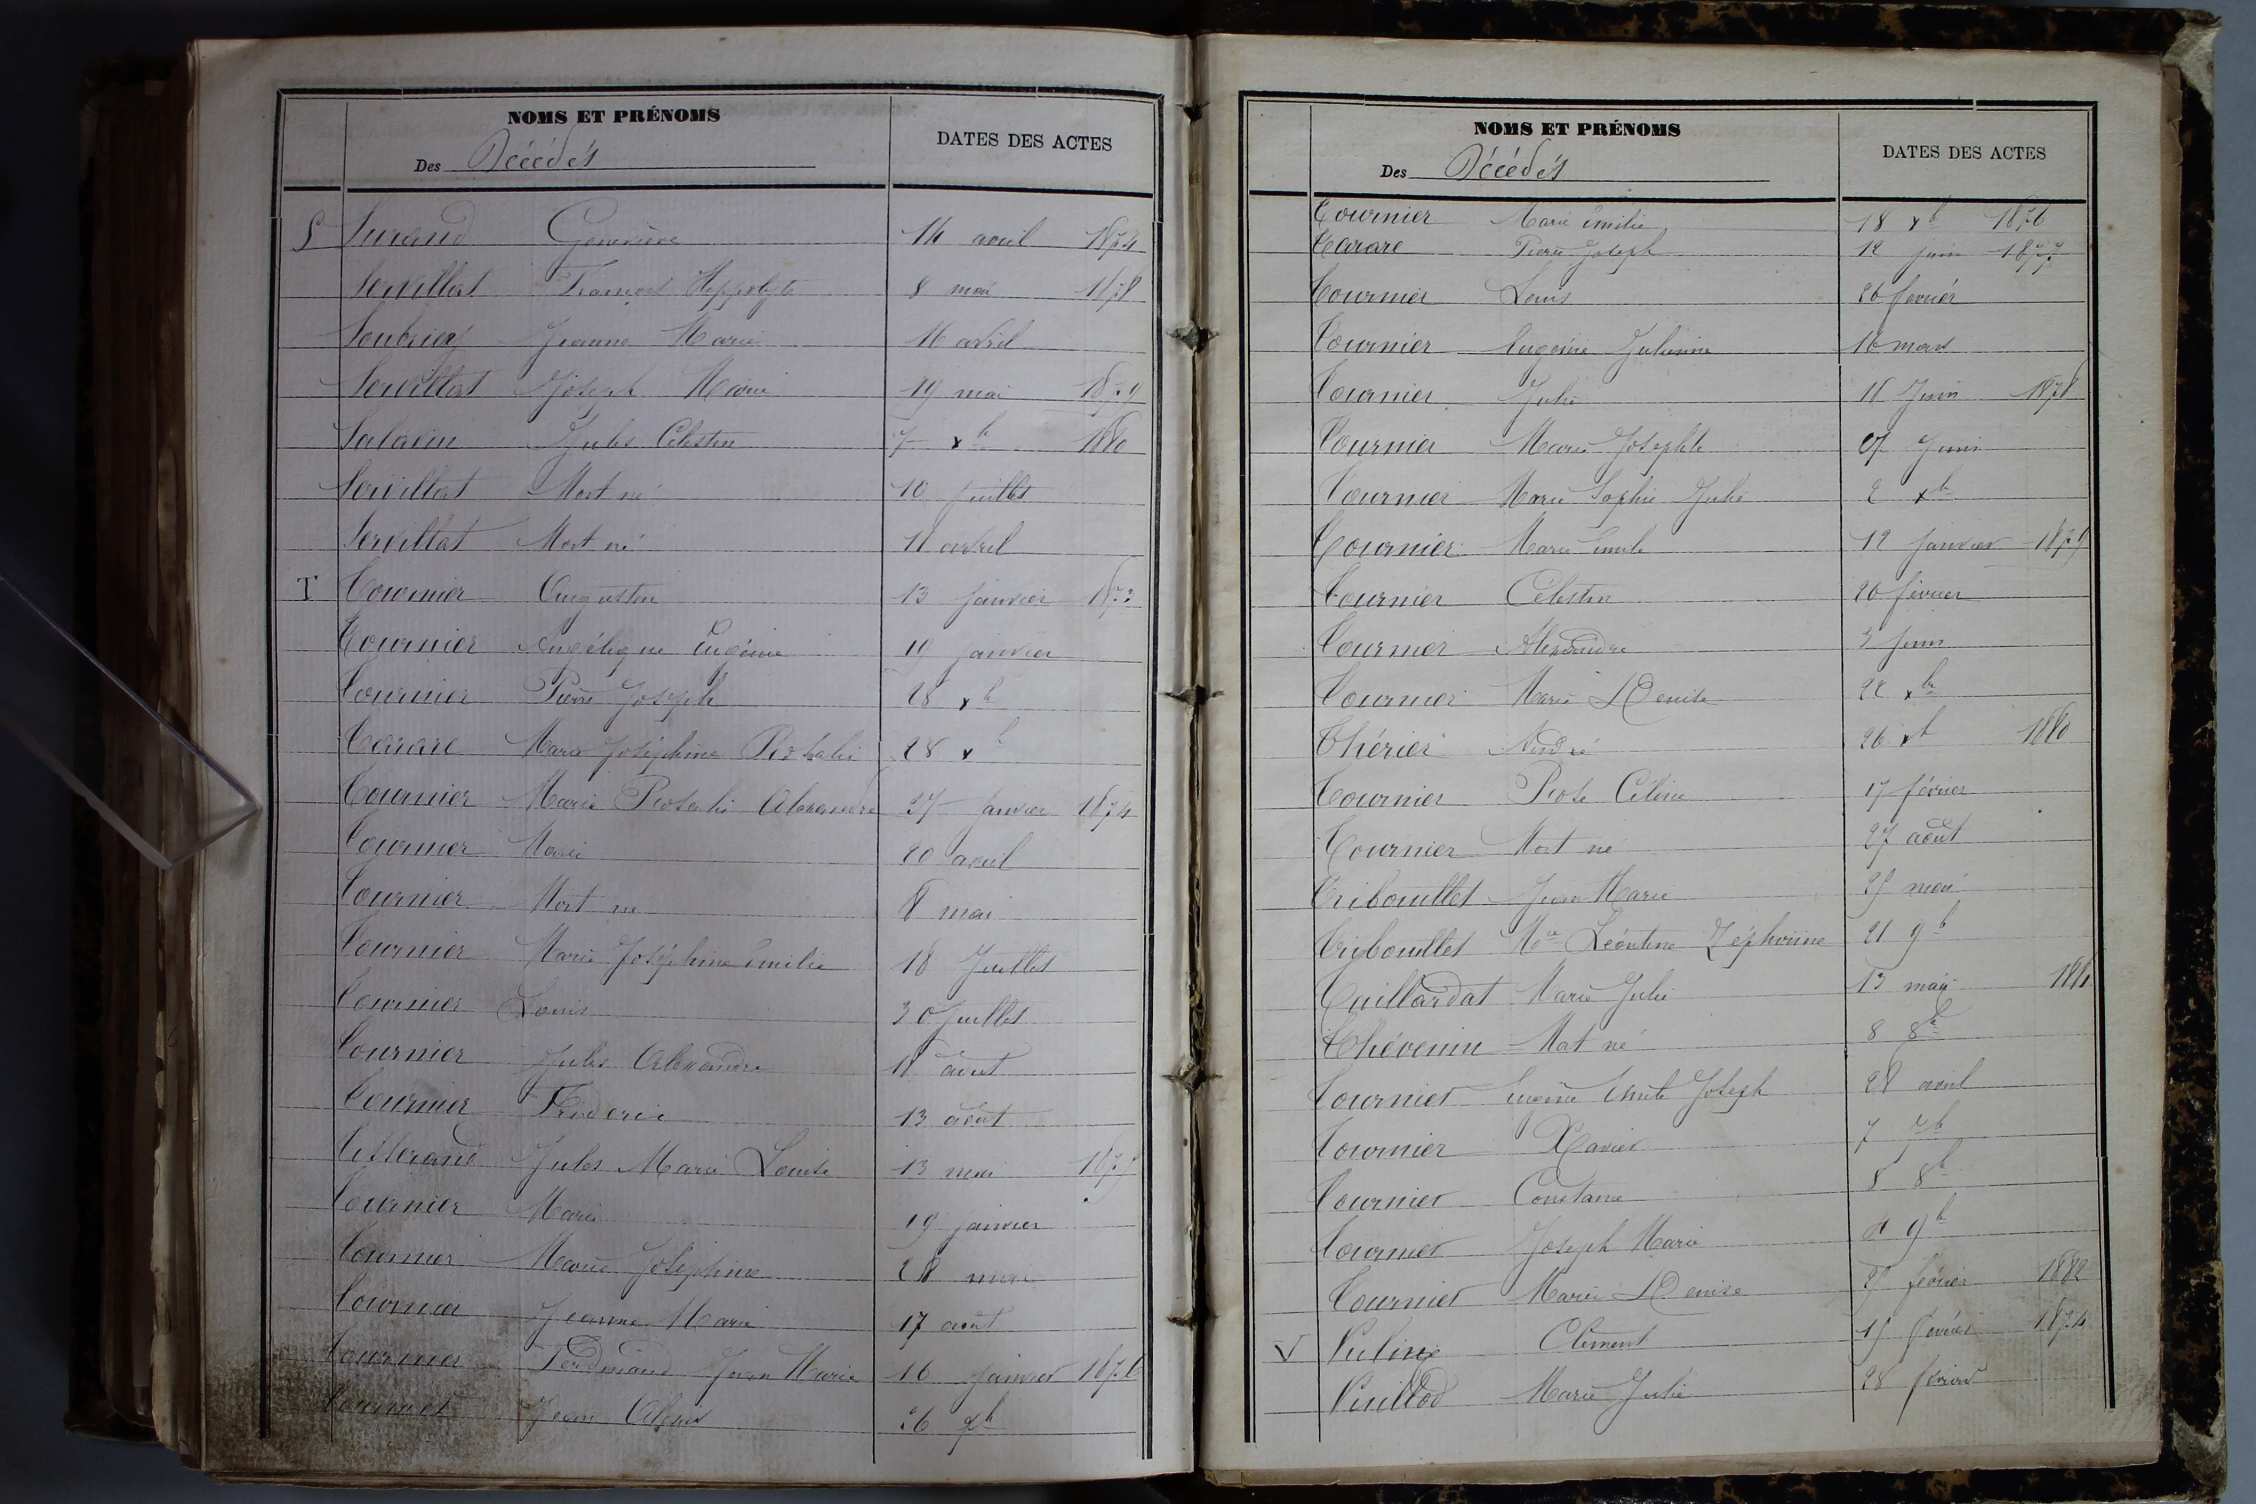 NOMS ET PRÉNOMS
Des Décédés
DATES DES ACTES
S Durand Geneviève 14 avril 1874
Servillat François Hyppolyte 8 mai 1878
Jeanne Marie 16 avril
Servillat Joseph Marie 19 mai 1879
Salavin Jules Célestin 7 xb 1880
Servillat Mort né 10 Juillet
Servillat Mort né 11 avril
T Tournier Augustin 13 janvier 1873
Tournier Angélique Eugénie 19 janvier
Tournier Pierre Joseph 28 xb
Tarare Marie Joséphine 28 xb
Tournier Marie Rosalie Alexandre 27 Janvier 1874
Tournier Marie 20 avril
Tournier Mort né 8 mai
Tournier Marie Joséphine Emilie 18 Juillet
Tournier Louis 30 Juillet
Tournier Jules Alexandre 11 août
Tournier Frédéric 13 août
Tisserand Jules Marie Louise 13 mai 1875
Tournier Marie 19 janvier
Tournier Marie Joséphine 28 mai
Tournier Jeanne Marie 17 août
Tournier Ferdinand Jean Marie 16 Janvier 1876
Tournier Jean Alexis 26
NOMS ET PRÉNOMS
Des Décédés
DATES DES ACTES
Tournier Marie Emilie 18 xb 1876
Tarare Pierre Joseph 12 juin 1877
Tournier Louis 26 fevrier
Tournier Eugénie Julienne 16 mars
Tournier Julie 11 Juin 1878
Tournier Marie Josephte Juin
Tournier Marie Sophie Julie 2 xb
Tournier Marie Emile 12 Janvier 1879
Tournier Célestin 20 février
Tournier Alexandre 3 Juin
Tournier Marie Denise 22 xbr
Thérier André 26 xb 1880
Tournier Rose Céline 17 février
Tournier Mort né 27 août
Tribouillet Jean Marie 29 mai
Tribouillet Mie Léontine Zéphirine 21 9b
Tuillardat Marie Julie 13 mai 1881
Thévenin Mort né 8 8b
Tournier Eugène Emile Joseph 28 avril
Tournier Xavier 7 7b
Tournier Constance 8 8b
Tournier Joseph Marie 9b
Tournier Marie Denise 27 février 1882
V Vulin Clément 15 février 1874
Vuillod Marie Julie 28 février